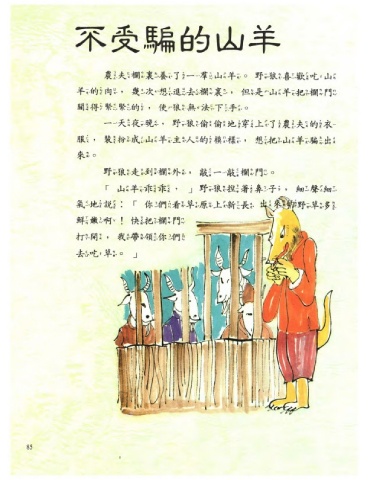 不受騙的山羊
農夫欄裏養了一羣山羊。野狼喜歡吃山
羊的肉，幾次想進去欄裏，但是山羊把欄門
關得緊緊的，使狼無法下手。
一天夜晚，野狼偷偷地穿上了農夫的衣
服，裝扮成山羊主人的模樣，想把山羊騙出
來。
野狼走到欄外，敲一敲欄門。
「山羊乖乖，」野狼捏著鼻子，細聲細
氣地說：「你們看草原上新長出來的野草多
鮮嫩啊！快把欄門
打開，我帶領你們
去吃草。」
85